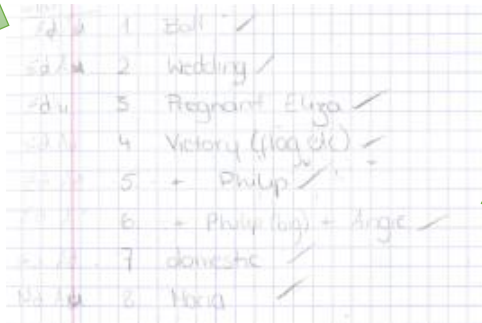 1 Ball
2 Wedding
3 Pregnant Eliza
4 Victory (flag etc)
5 + Philip
6 + Philip (big) + Angie
7 domestic
8 Maria